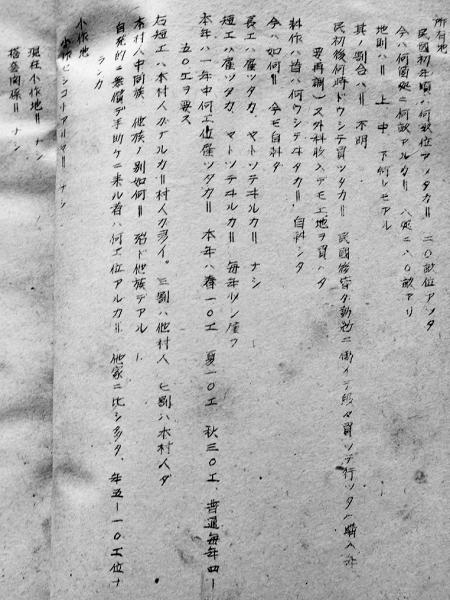 所有地
民國初年頃ハ何畝位アツタカ＝ 二〇畝位アツタ
今ハ何箇処ニ何畝アルカ＝ 八処ニ八〇畝アリ
地則ハ＝ 上中下何レモアル
其ノ割合ハ＝ 不明
民初後何時ドウシテ買ツタカ＝ 民國後皆ガ勤勉ニ働イテ段々買ツテ行ツタ
耕作ハ昔ハ何ウシテヰタカ＝ 自耕シタ
今ハ如何＝ 今モ自耕ダ
長工ハ雇ツタカ、ヤトツテヰルカ＝ ナシ
短工ハ雇ツタカ、ヤトツテヰルカ＝ 毎年少シ雇フ
本年ハ一年中何工位雇ツタカ＝ 本年ハ春一〇工 夏一〇工 秋三〇工、普通毎年四—
五〇工ヲ要ス
右短工ハ本村人ガナルカ＝村人カ多イ。三割ハ他村人 七割ハ本村人ダ
本村人中同族 他族ノ別如何＝ 殆ド他族デアル
自発的ニ無償デ手助ケニ来ル者ハ何工位アルカ＝ 他家ニ比シ多ク、年五—一〇工位ナ
ランカ
小作地
現在小作地＝ ナシ
搭套関係＝ ナシ